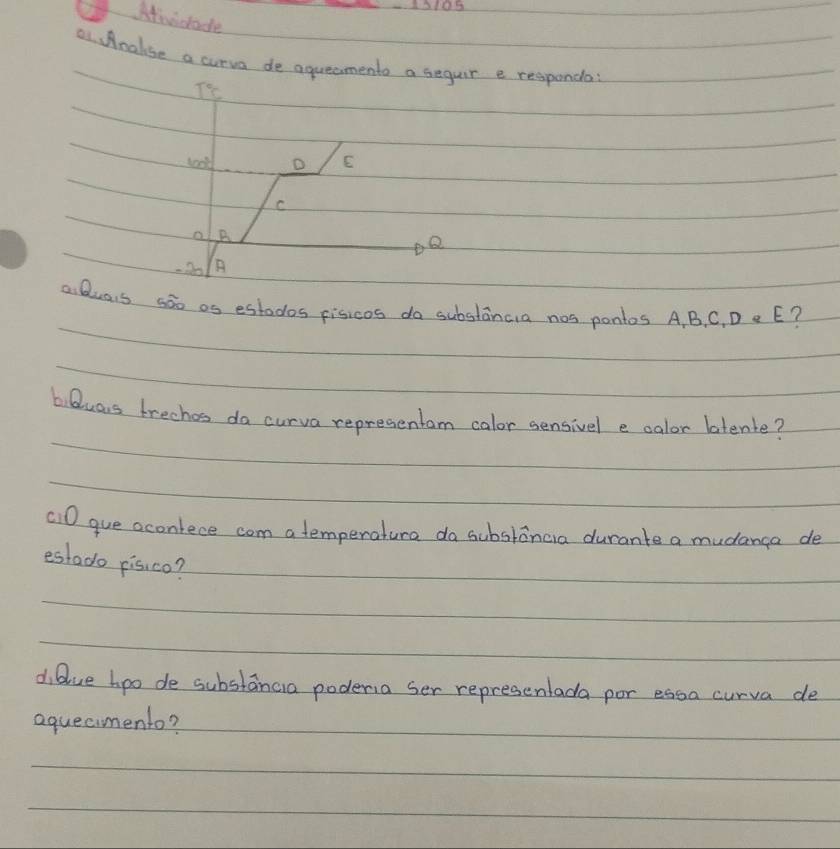 13/05
Atividade
01. Analise a curva de aquecimento a seguir e responda:
T°C
100°
D E
C
0 B
Q
-20 A
a. Quais são os estados físicos da substância nos pontos A, B, C, D e E?
b. Quais trechos da curva representam calor sensível e calor latente?
c. O que acontece com a temperatura da substância durante a mudança de
estado físico?
d. Que tipo de substância poderia ser representada por essa curva de
aquecimento?